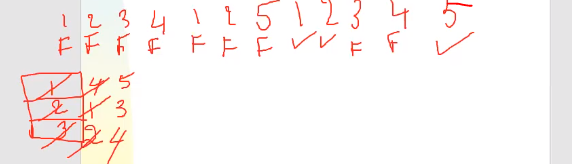 1 2 3 4 1 2 5 1 2 3 4 5
F F F F F F F ✓ ✓ F F ✓
1 4 5
2 1 3
3 2 4